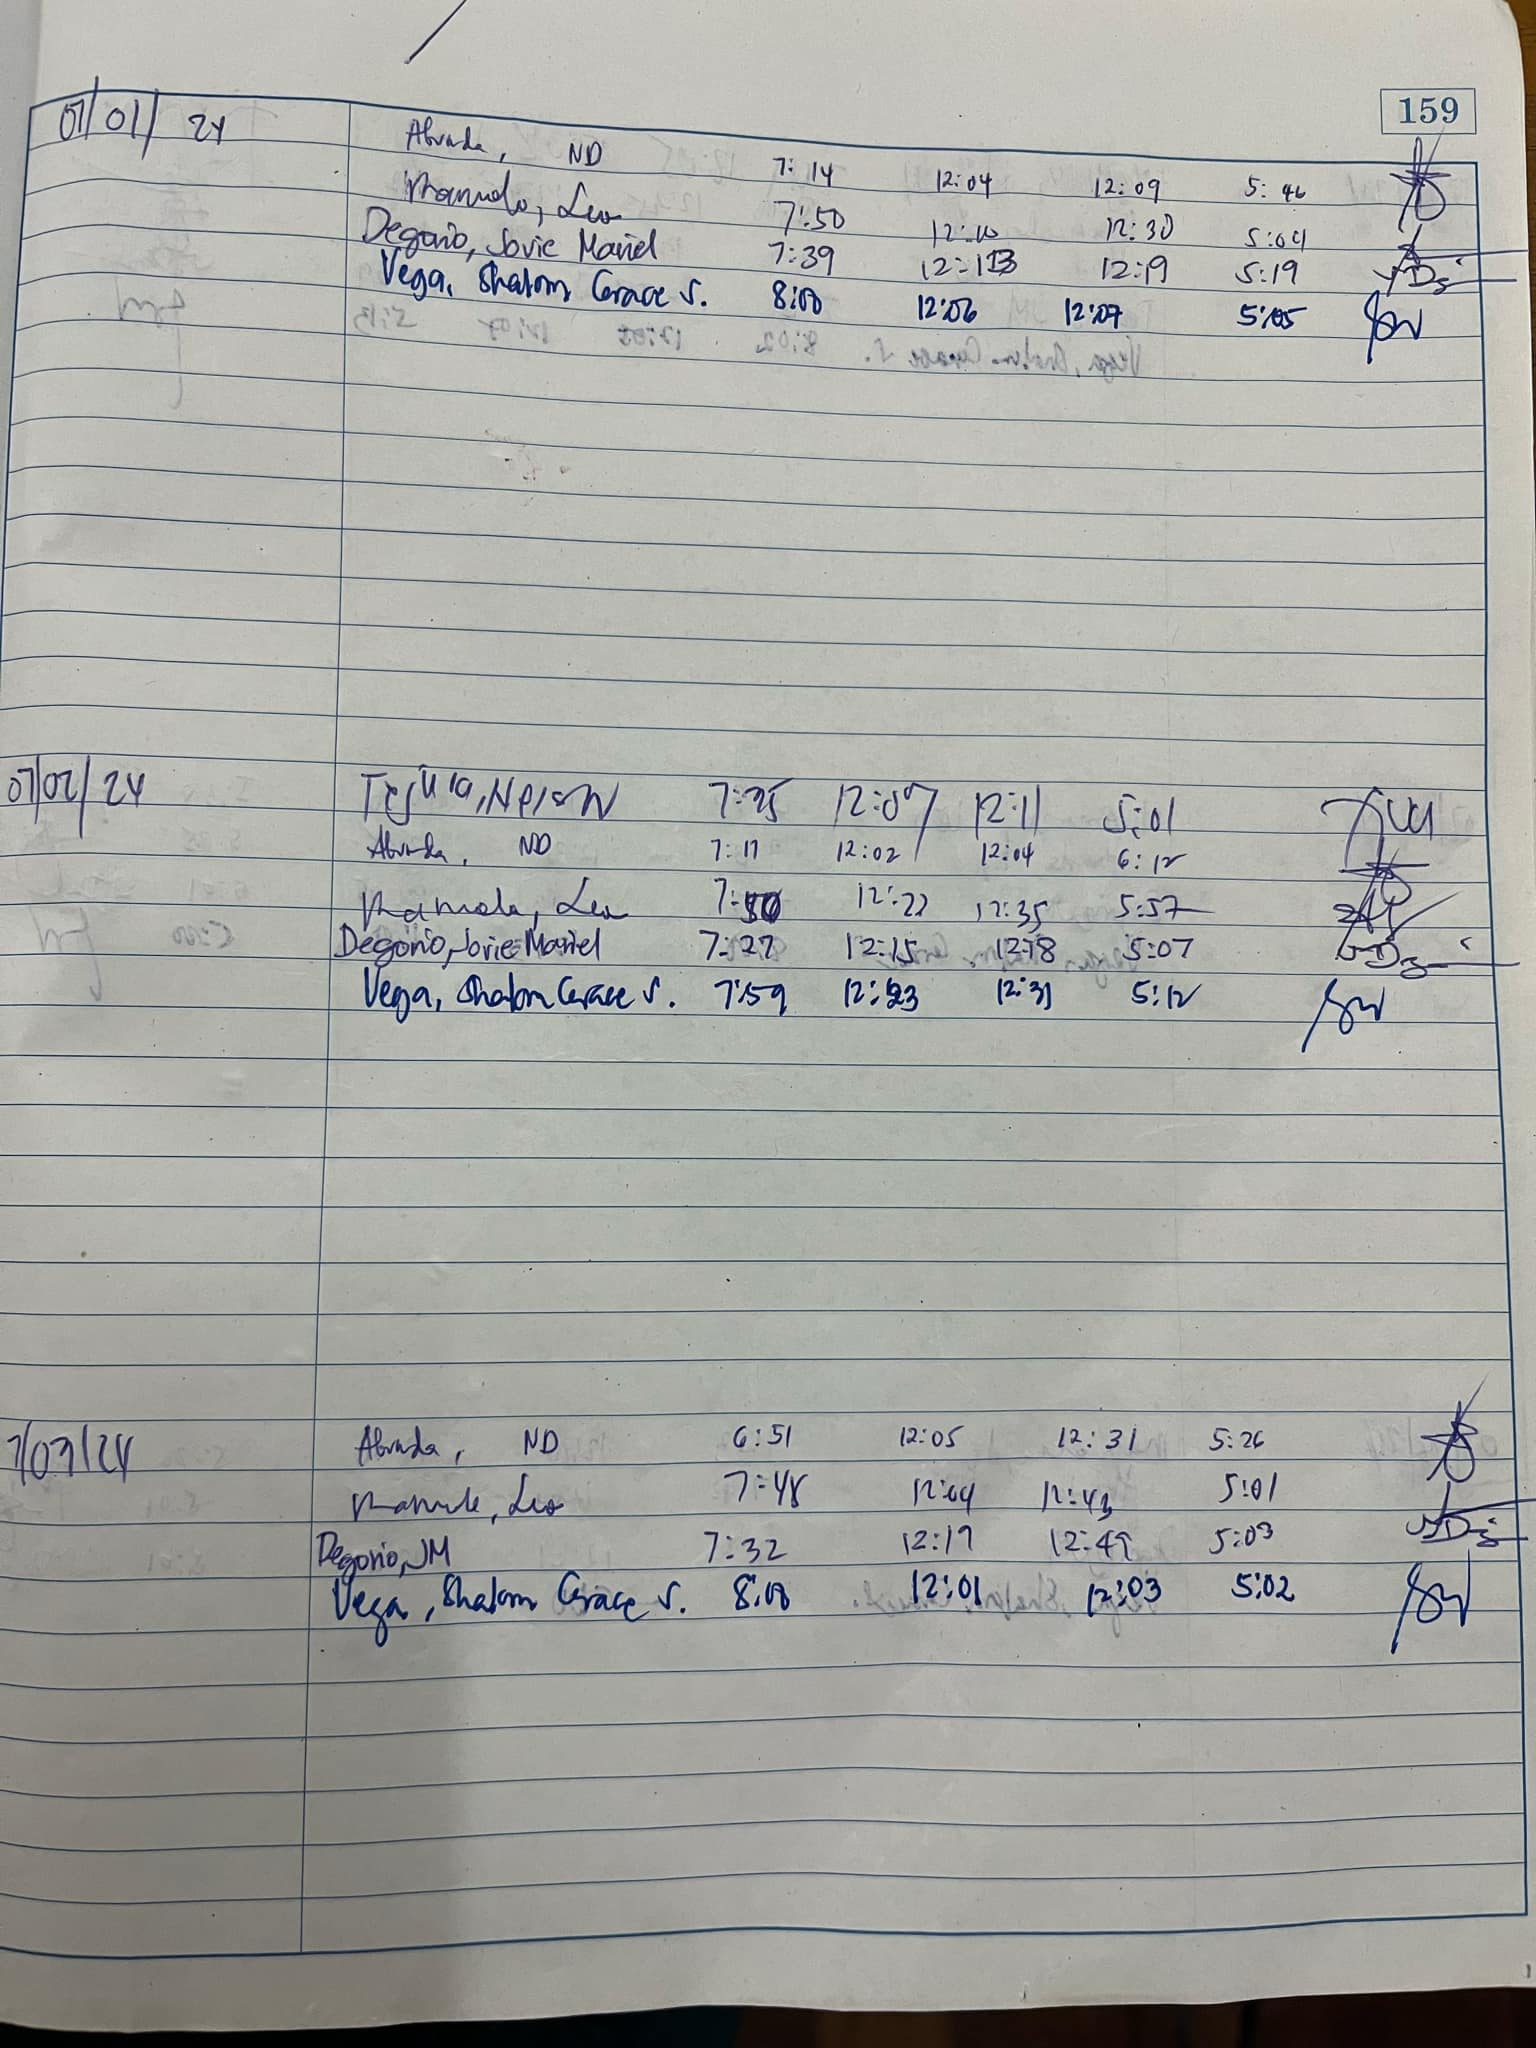 159
07/01/24 Abrada, ND 7:14 12:04 12:09 5:46
Leo 7:50 12:10 12:30 5:04
Degorio, Jovie Mariel 7:39 12:13 12:19 5:19
Vega, Shalom Grace S. 8:00 12:06 12:07 5:05
07/02/24 7:35 12:07 12:11 5:01
Abrada, ND 7:17 12:02 12:04 6:12
Leo 7:50 12:22 12:35 5:57
Degorio, Jovie Mariel 7:27 12:15 12:18 5:07
Vega, Shalom Grace S. 7:59 12:23 12:31 5:12
7/03/24 Abrada, ND 6:51 12:05 12:31 5:26
Leo 7:48 12:04 12:43 5:01
Degorio, JM 7:32 12:17 12:49 5:03
Vega, Shalom Grace S. 8:00 12:01 12:03 5:02